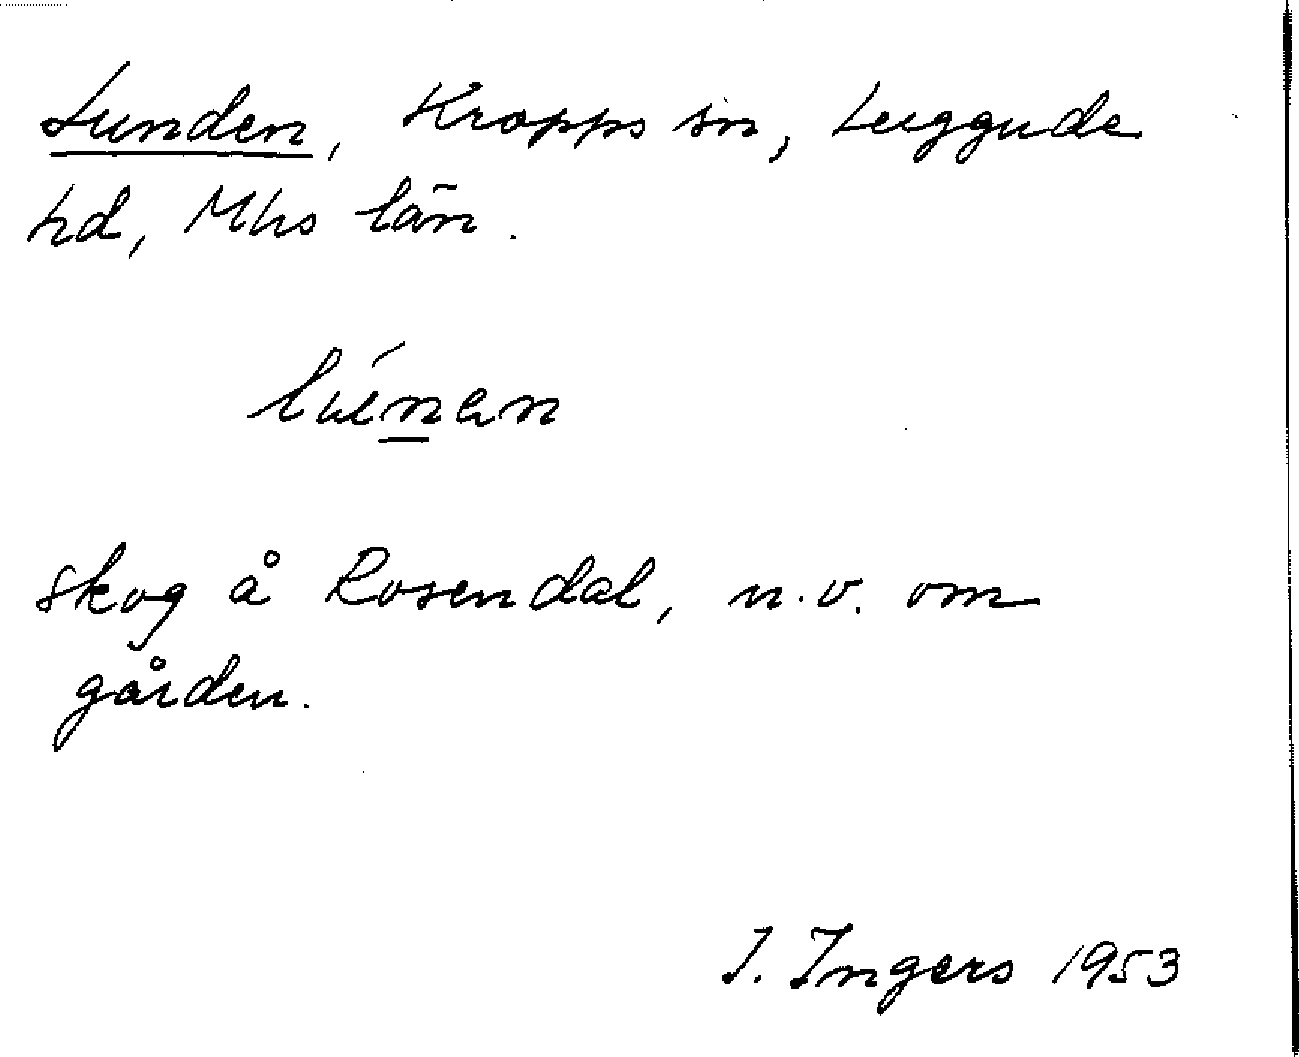 Lunden, Kropps sn, Luggude
hd, Mhs län.
lúnan
skog å Rosendal, n.v. om
gården.
I. Ingers 1953